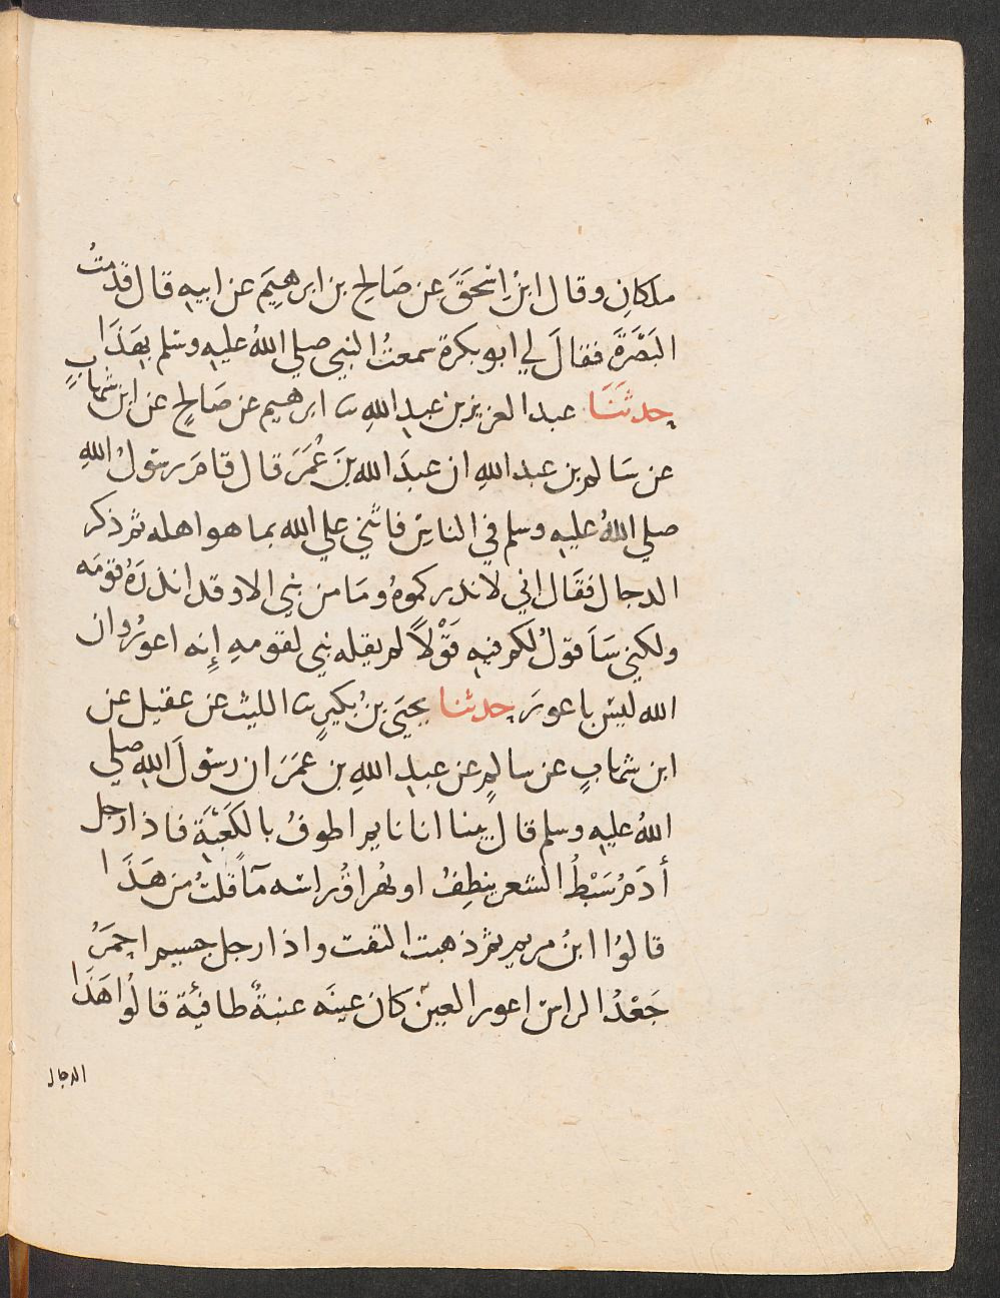 ملكانِ وقال ابنُ اِسْحَقَ عن صَالِحِ بن ابرهيمَ عن ابيهِ قال قدِمتُ
البَصْرَةَ فقالَ لي ابو بكرة سمعتُ النبي صلي اللهُ عليهِ وسَلم بِهَذَا
حدثَنَا عبد العزيز بن عبدِ اللهِ ثا ابرهيم عن صَالحٍ عن ابن شهابٍ
عن سَالم بن عبد اللهِ ان عبدَ الله بنَ عُمَرَ قال قامَ رسَولُ اللهِ
صلي اللهُ عليهِ وسلم في الناسِ فاثني علي الله بما هو اهله ثم ذكر
الدجال فقال اني لانذركموهُ ومَا من نبي الا وقد انذرَهُ قومَه
ولكني سَاَقولُ لكم فيهِ قَوْلاً لم يقله نبي لقومهِ إنه اعورُ وان
الله ليسَ باعورَ حدثنا يحيَى بنُ بُكيرٍ ثا الليث عن عقيل عن
ابن شهابٍ عن سالمٍ عن عبدِ اللهِ بن عمَرَ ان رسَولَ الله صلي
اللهُ عليهِ وسلم قال بينا انا نايم اطوفُ بالكَعْبَةِ فاذا رجل
أدَمُ سَبْطُ الشعر ينطِفُ او يُهراقُ راسَه مآءً قلتُ من هَذَا
قالوُا ابنُ مريم ثم ذهبت التفت واذا رجل جسيم احمَرُ
جَعْدُ الراسَ اعور العينَ كان عينَه عنبةٌ طافئة قالُوا هَذَا
الدجال